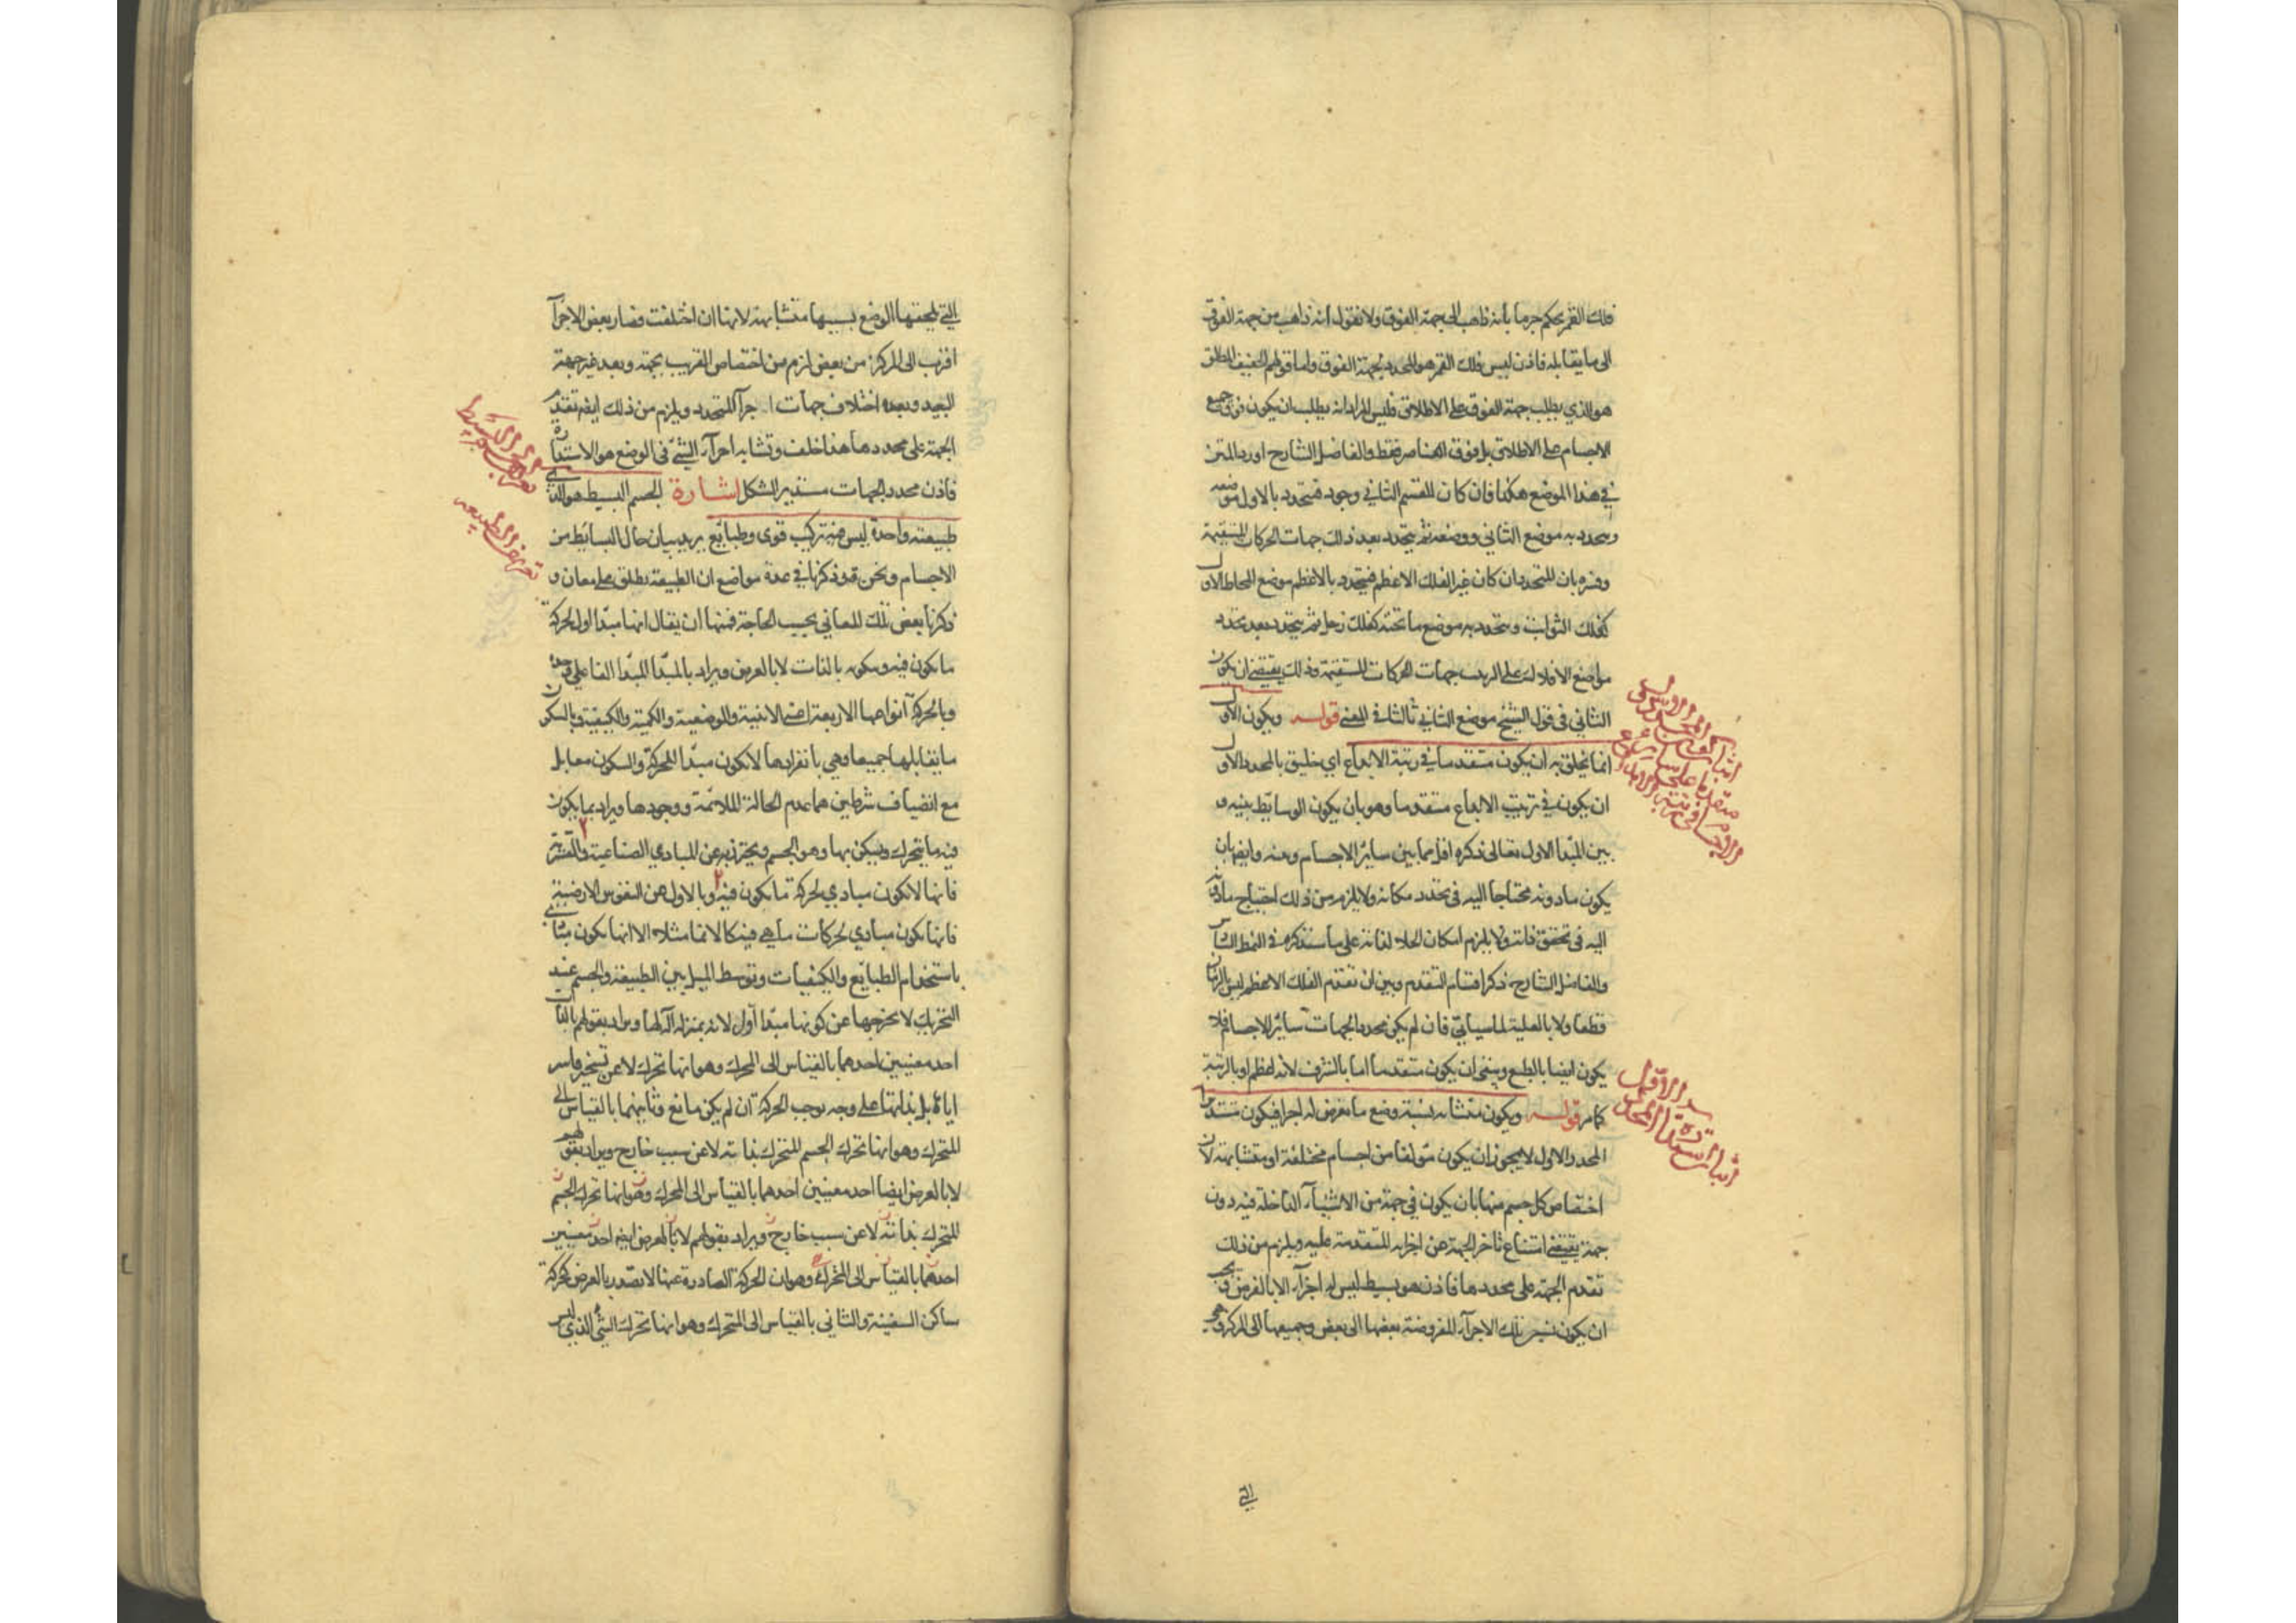 فلك القمر يحكم جزما بأنه ذاهب الى جهة الفوق ولا نقول أنه ذاهب من جهة الفوق
الى ما يقابله فاذن ليس فلك القمر هو المحدد لجهة الفوق واما قولهم الخفيف المطلق
هو الذي يطلب جهة الفوق على الاطلاق فليس المراد انه يطلب ان يكون فوق جميع
الاجسام على الاطلاق بل فوق العناصر فقط والفاضل الشارح اورد المتن
في هذا الموضع هكذا فان كان للقسم الثاني وجود فيتحدد بالاول موضعه
ويتحدد به موضع الثاني ووضعه ثم يتحدد بعد ذلك جهات الحركات المستقيمة
وفسره بان المتحدد ان كان غير الفلك الاعظم فيتحدد بالاعظم موضع المحاط الاول
كفلك الثوابت ويتحدد به موضع ما تحته كفلك زحل ثم يتحدد بعد تحدد
مواضع الافلاك على الترتيب جهات الحركات المستقيمة وذلك يقتضي ان يكون
الثاني في قول الشيخ موضع الثاني ثالثا في المعنى قوله ويكون الاول
انما يخلق به ان يكون متقدما في رتبة الابداع اي خليق بالمحدد الاول
ان يكون في ترتيب الابداع متقدما وهو بان يكون الوسايط بينه و
بين المبدأ الاول تعالى ذكره اقل مما بين سائر الاجسام وبينه وايضا بان
يكون ما دونه محتاجا اليه في تحدد مكانه ولا يلزم من ذلك احتياج ما دونه
اليه في تحقق ذاته ولا يلزم امكان الخلاء لذاته على ما سنذكره في النمط السادس
والفاضل الشارح ذكر اقسام التقدم وبين ان تقدم الفلك الاعظم ليس الزمان
قطعا ولا بالعلية لما سيأتي فان لم يكن محدد الجهات سائر الاجسام فلا
يكون ايضا بالطبع وبقي ان يكون متقدما اما بالشرف لانه اعظم او بالرتبة
كما مر قوله ويكون متشابه نسبة وضع ما يفرض له اجزا فيكون مستديرا
المحدد الاول لا يجوز ان يكون مؤلفا من اجسام مختلفة او متشابهة لان
اختصاص كل جسم منها بان يكون في جهة من الاشياء الداخلة فيه دون
جهة يقتضي امتناع تأخر الجهة عن اجزائه المتقدمة عليه ويلزم من ذلك
تقدم الجهة على محددها فاذن هو بسيط ليس له اجزاء الا بالفرض ويجب
ان يكون نسبة تلك الاجزاء المفروضة بعضها الى بعض وجميعها الى المركز وهي
التي
التي يلحقها الوضع بسببها متشابهة لانها ان اختلفت فصار بعض الاجزاء
اقرب الى المركز من بعض لزم من اختصاص القريب بجهة وبعد غير جهة
البعيد وبعده اختلاف جهات اجزاء المتحدد ويلزم من ذلك ايضا تقدم
الجهة على محددها هذا خلف وتشابه اجزاء الشئ في الوضع هو الاستدارة
فاذن محدد الجهات مستدير الشكل اشارة الجسم البسيط هو الذي
طبيعته واحدة ليس فيه تركيب قوى وطبائع يريد بيان حال البسائط من
الاجسام ونحن قد ذكرنا في عدة مواضع ان الطبيعة يطلق على معان و
ذكرنا بعض تلك المعاني بحسب الحاجة فمنها ان يقال انها مبدأ اول لحركة
ما يكون فيه وسكونه بالذات لا بالعرض ويراد بالمبدأ المبدأ الفاعلي وحده
وبالحركة انواعها الاربعة اعني الاينية والوضعية والكمية والكيفية وبالسكون
ما يقابلها جميعا وهي بانفرادها لا تكون مبدأ للحركة والسكون معا بل
مع انضياف شرطين هما عدم الحالة الملائمة ووجودها ويراد بما يكون
فيه ما يتحرك ويسكن بها وهو الجسم ويحترز به عن المبادي الصناعية والقسرية
فانها لا تكون مبادي لحركة ما يكون فيه وبالاول عن النفوس الارضية
فانها تكون مبادي لحركات ما هي فيه كالانماء مثلا الا انها تكون مبادي
باستخدام الطبايع والكيفيات وتوسط الميل بين الطبيعة والجسم عند
التحريك لا يخرجها عن كونها مبدأ اول لانه بمنزلة آلة لها ويراد بقولهم بالذات
احد معنيين احدهما بالقياس الى المحرك وهو انها تحرك لا عن تسخير قاسر
اياها بل بذاتها على وجه يوجب الحركة ان لم يكن مانع وثانيهما بالقياس الى
المتحرك وهو انها تحرك الجسم المتحرك بذاته لا عن سبب خارج ويراد بقولهم
لا بالعرض ايضا احد معنيين احدهما بالقياس الى المحرك وهو انها تحرك الجسم
المتحرك بذاته لا عن سبب خارج ويراد بقولهم لا بالعرض ايضا احد معنيين
احدهما بالقياس الى المحرك وهو ان الحركة الصادرة عنها لا تصدر بالعرض كحركة
ساكن السفينة والثاني بالقياس الى المتحرك وهو انها تحرك الشئ الذي ليس